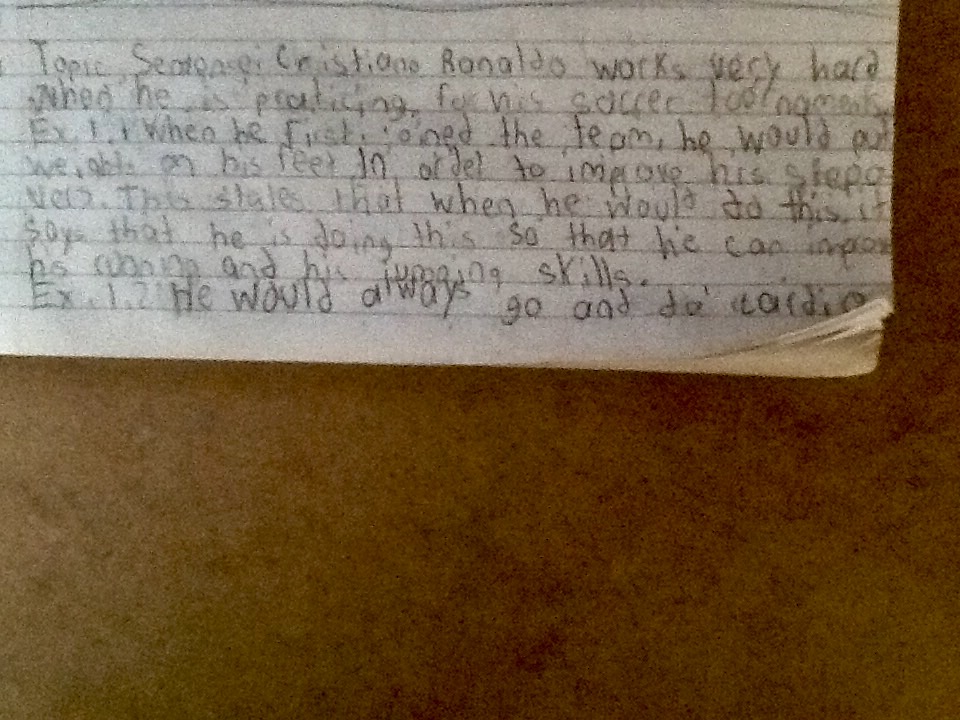 Topic Sentence: Cristiano Ronaldo works very hard
when he is practicing for his soccer tournaments
Ex 1.1 When he first joined the team, he would put
weights on his feet in order to improve his stepo
ver. This states that when he would do this, it
says that he is doing this so that he can improv
his running and his jumping skills.
Ex. 1.2 He would always go and do cardio